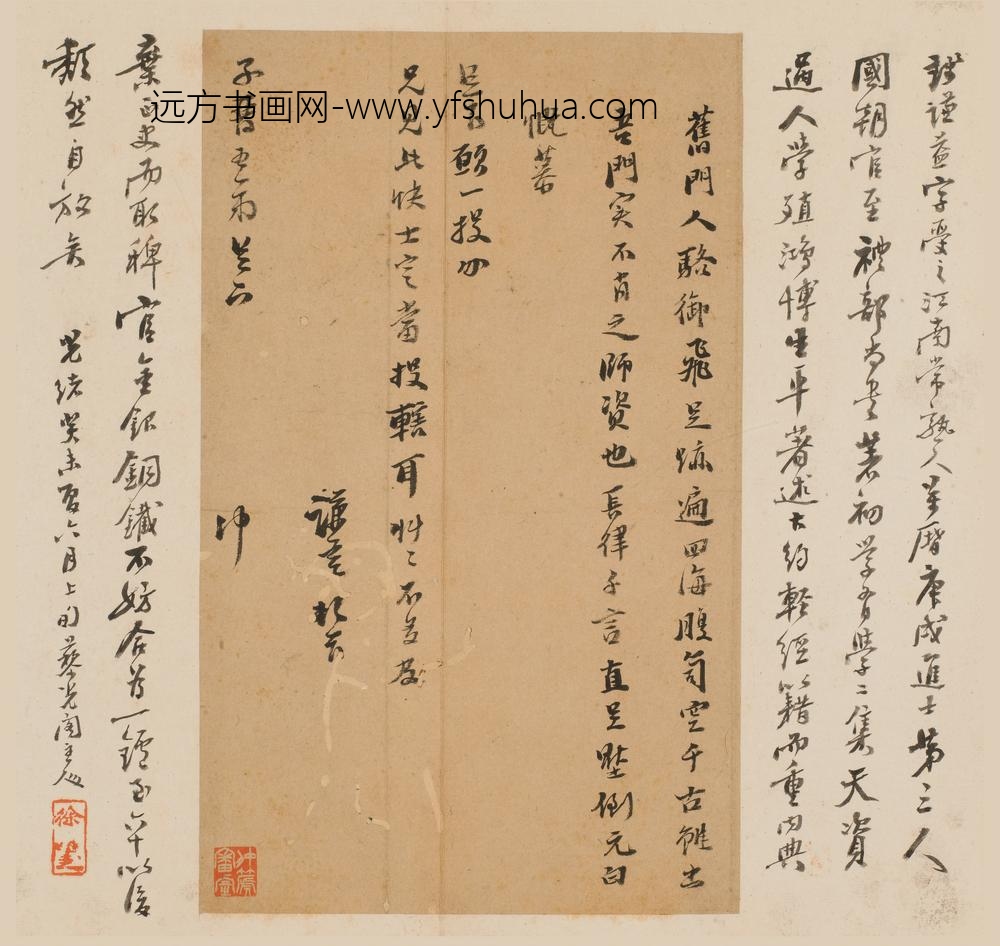 錢謙益字受之江南常熟人萬曆庚戌進士第三人
國朝官至禮部尚書著初學有學二集天資
過人學殖鴻博生平著述大約輕經籍而重內典
舊門人駱御飛足跡遍四海腹笥空千古雖出
吾門実不肖之師資也長律千言直足壓倒元白
慨慕
願一投
兄見此快士定當投轄耳艸〻不盡
謙益頓首
子
冲
棄正史而取稗官金銀銅鐵不妨合為一鑪至六十以後
頹然自放矣
光緒癸未夏六月上旬
远方书画网-www.yfshuhua.com